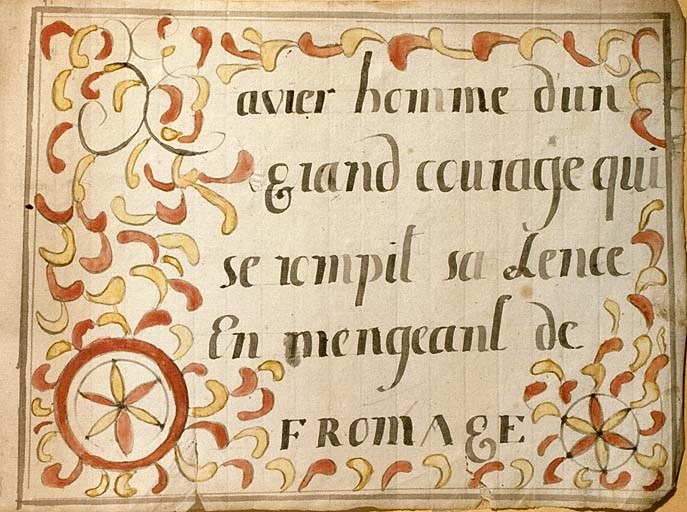 Xavier homme d'un
grand courage qui
se rompit sa dence
En mengeant de
FROMAGE